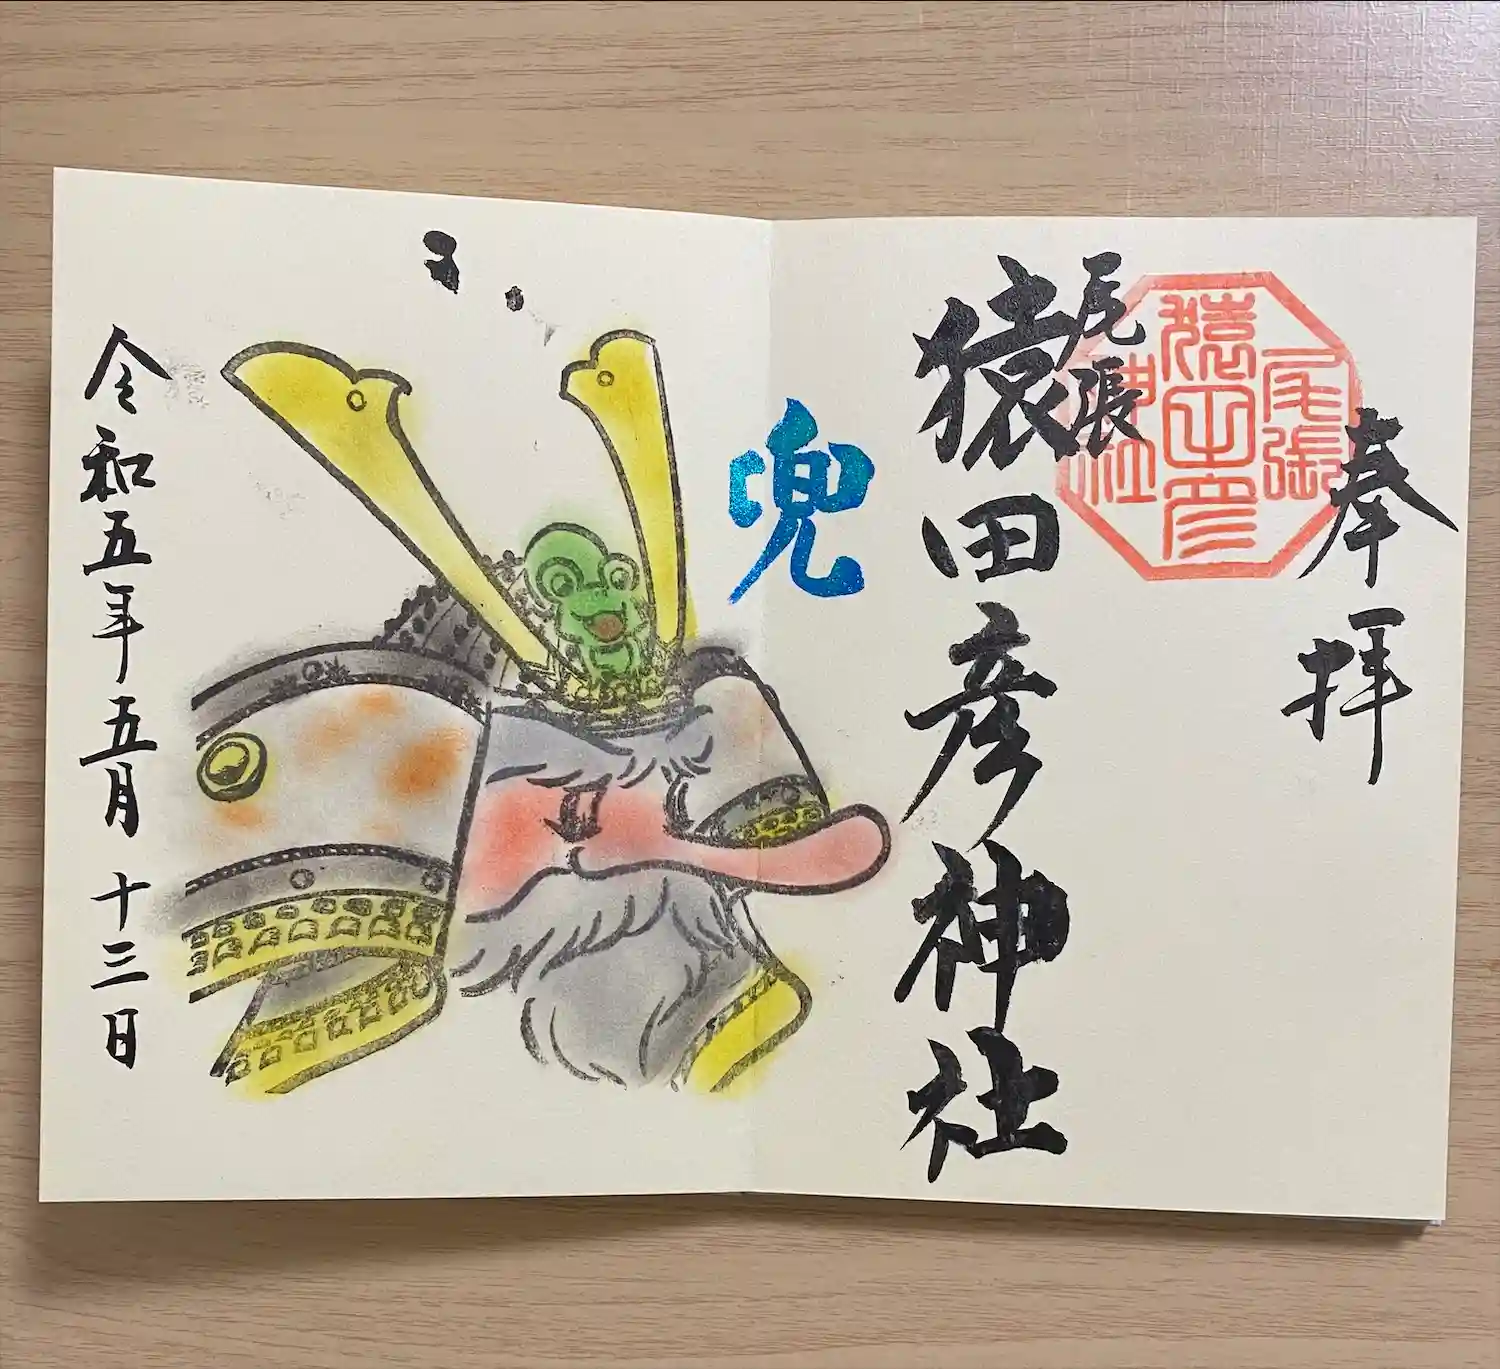 奉拝
尾張
猿田彦
神社
尾張
猿田彦神社
兜
令和五年五月十三日